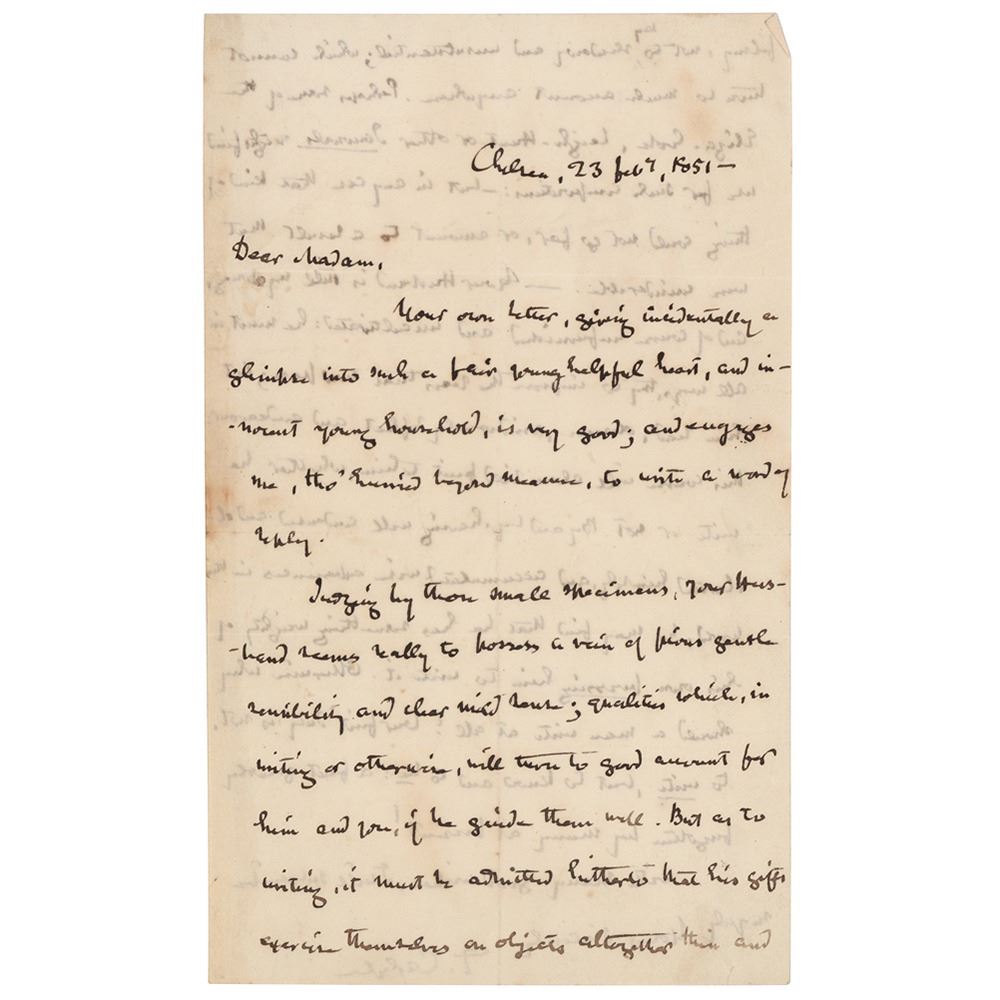 Chelsea, 23 feby, 1851—
Dear Madam,
Your own letter, giving incidentally a
glimpse into such a fair young helpful heart, and in-
-nocent young household, is very good; and engages
me, tho' hurried beyond measure, to write a word of
reply.
Judging by those small specimens, your Hus-
-band seems really to possess a vein of pious gentle
sensibility and clear mild sense; qualities which, in
writing or otherwise, will turn to good account for
him and you, if he guide them well. But as to
writing, it must be admitted hitherto that his gifts
exercise themselves on objects altogether thin and